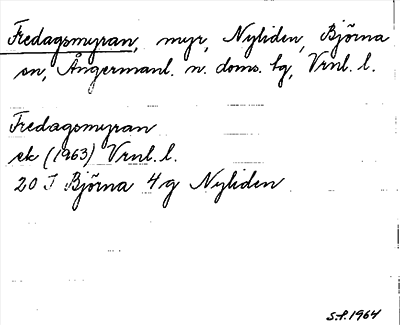 Fredagsmyran, myr, Nyliden, Björna
sn, Ångermanl. n. doms. lg, Vrnl. l.
Fredagsmyran
ek (1963) Vrnl. l.
20 I Björna 4 g Nyliden
S.f. 1964